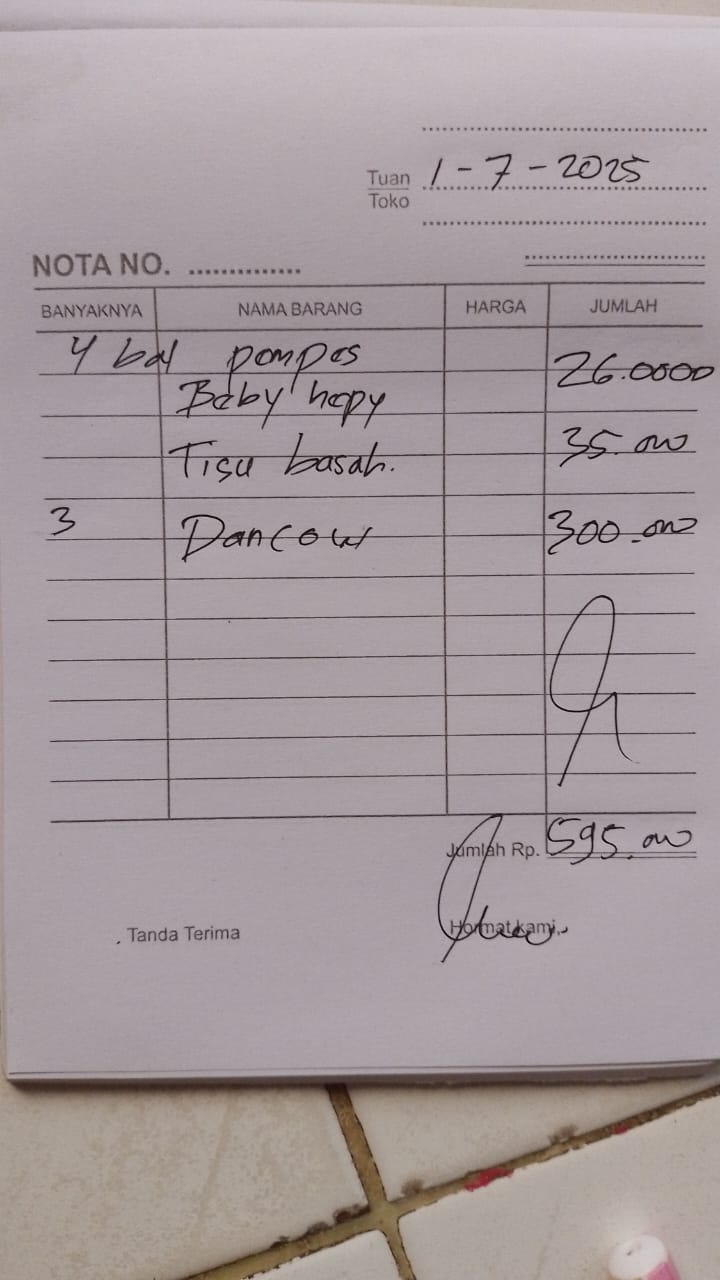 Tuan 1-7-2025
Toko
NOTA NO. ..............
BANYAKNYA NAMA BARANG HARGA JUMLAH
4 bal pempes 26.0000
Baby hepy
Tisu basah. 35.000
3 Dancow 300.000
Jumlah Rp. 595.000
Tanda Terima Hormat kami,